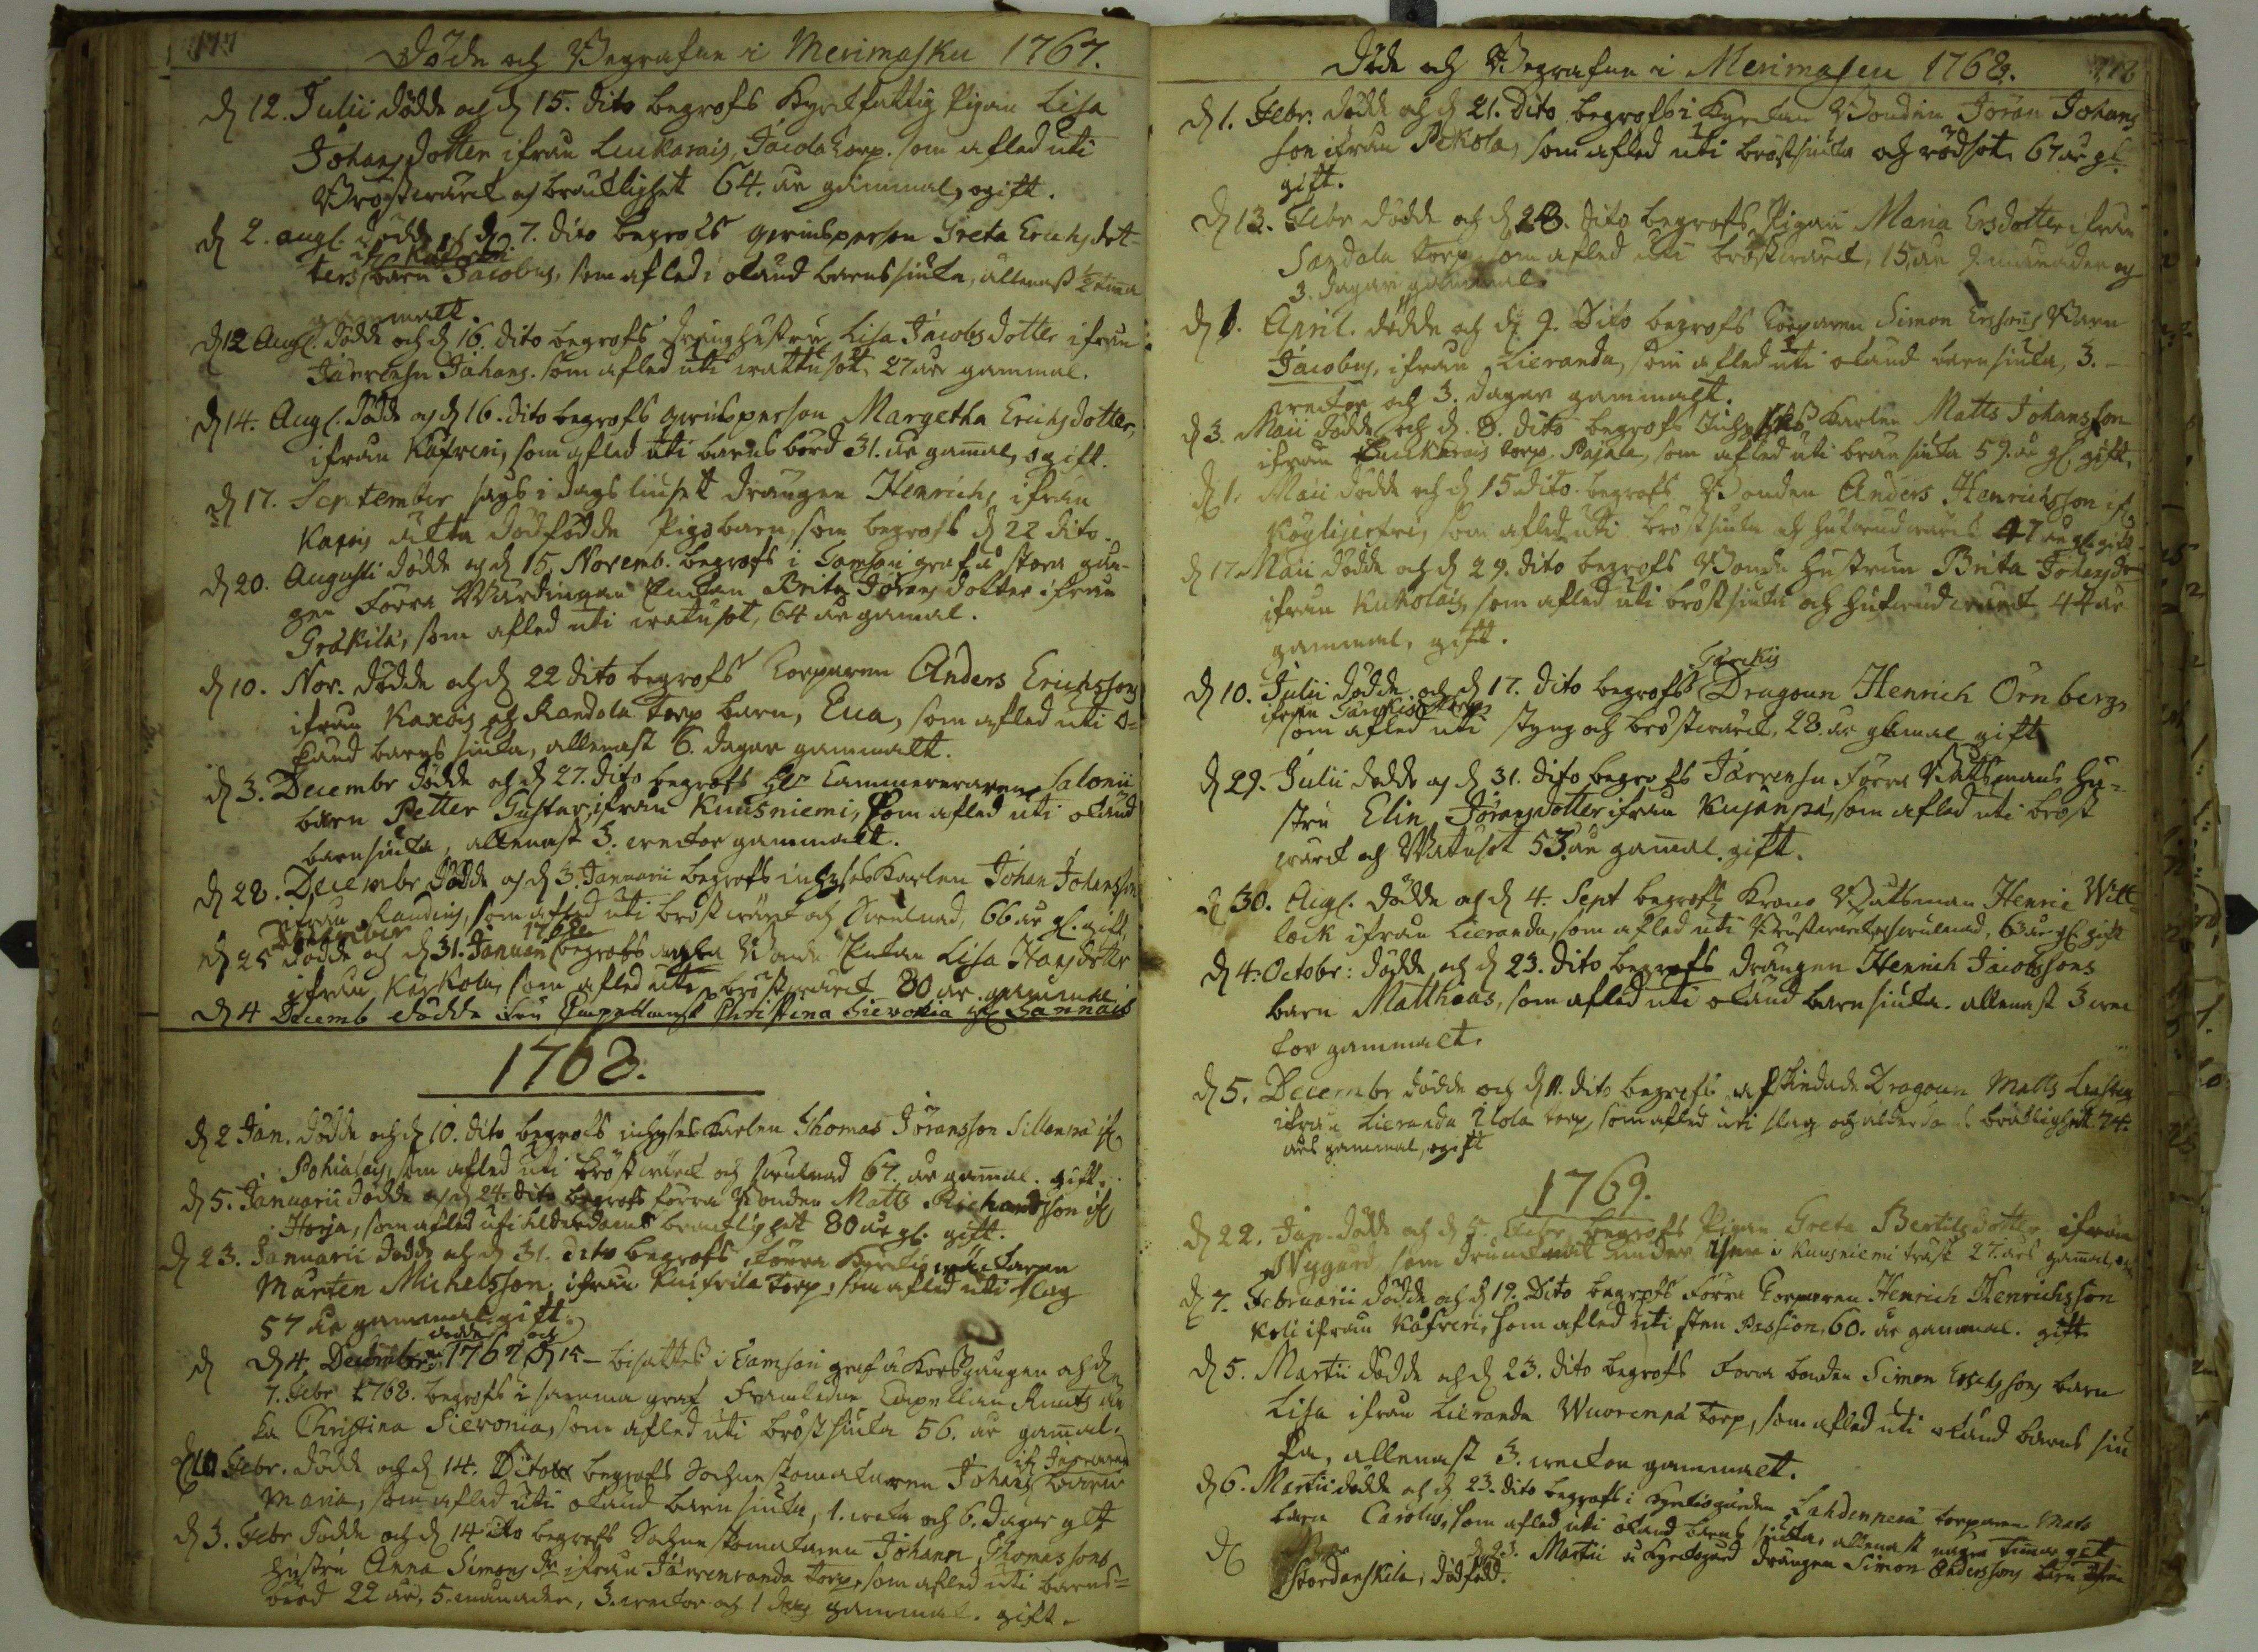 177
Döde och Begrafne i Merimasku 1767.
d 12. Julii dödde och d 15. dito begrofs Kyrckfattig Pigan Lisa
Johansdotter ifrån Luckarais, Jacola torp. som afled uti
Bröstwärck och bräcklighet 64. år gammal, ogift.
d 2. augs. dödde och d 7. dito begrofs qwinsperson Greta Erichsdot-
ters barn Jacobus, som afled i okänd barnsiuka, allenast 1/2 tima
gammalt.
d 12 Augs. dödde och d 16. dito begrofs Dräng hustru Lisa Jacobsdotter ifrån
Järwensu Johans. som afled uti wattusot, 27 år gammal.
d 14. Augs. dödde och d 16. dito begrofs qwinsperson Margetha Erichsdotter,
ifrån Kåfreri, som afled uti barnsbörd 31. år gamal, ogift.
d 17. September sags i dagsliuset drängen Henrichs ifrån
Kaxois äckta dödfödde Pigobarn, som begrofs d 22 dito.
d 20. Augusti dödde och d 15. Novemb. begrofs i Tomson graf å stora gån-
gen Förra Wärdinnan Enkan Brita Jöransdotter ifrån
Gråkila, som afled uti watusot, 64 år gamal.
d 10. Nov. dödde och d 22 dito begrofs Torparen Anders Erichssons
ifrån Kaxois och Randola torp barn, Eva, som afled uti o-
känd barnsiuka, allenast 6. dagar gammalt.
d 3. Decembr dödde och d 27. dito begrofs Hr Cammereraren Salonii
barn Petter Gustav, ifrån Kuusniemi, som afled uti okänd
barnsiuka, allenast 3. weckor gammalt.
d 28. Decembr dödde och d 3. Januarii begrofs inhyses Karlen Johan Johansson
ifrån Randins, som afled uti bröstwärck och Swulnad, 66 år gl. gift,
December 1768
d 25 dödde och d 31. Januarii begrofs Bonde Enkan Lisa Hansdotter
ifrån Kärkola, som afled uti bröstwärck 80 år gammal
d 4 Decemb dödde Fru Christina Sieronia
1768.
d 2 Jan. dödde och d 10. dito begrofs inhyses Karlen Thomas Jöransson Sillanpä if
Pohialais, som afled uti bröstwärck och swulnad 67. år gamal. gift.
d 5. Januarii dödde och d 24. dito begrofs förra Bonden Matts Richardsson if
Horja, som afled uti ålderdoms bräcklighet 80 år gl. gift.
d 23. Januarii dödde och d 31. dito begrofs förra Kyrckiowäcktaren
Mårten Michelsson, ifrån torp, som afled uti slag
57 år gammal gift.
d 4. December 1767 dödde och d 15 bisattes i graf å Korsgången och d
7. Febr 1768. begrofs i samma graf Framledne Capellan En
ka Christina Sieronia, som afled uti bröstsiuka 56. år gamal.
d 10 Febr. dödde och d 14. Dito begrofs Sochneskomakaren Johans barn
Maria, som afled uti okänd barnsiuka, 1. wecka och 6. dagar glt
d 3. Febr dödde och d 14 dito begrofs Sochneskomakaren Johann Thomassons
hustru Anna Simonsdr ifrån Järwenranda torp, som afled uti barns-
börd 22 år, 5. månader, 3. weckor och 1 dag gammal. gift.
178
Döde och Begrafne i Merimasku 1768.
d 1. Febr. dödde och d 21. dito begrofs i Kyrckan Bonden Jöran Johans
son ifrån Pekola, som afled uti bröstsiuka och rödsot, 67 år gl.
gift.
d 13. Febr dödde och d 28. dito begrofs Pigan Maria Ersdotter ifrån
Sandala torp som afled uti bröstwärck, 15 år 9. månader och
3. dagar gammal.
d 1. April. dödde och d 9. Dito begrofs Torparen Simon Erssons Barn
Jacobus, ifrån Lieranda, som afled uti okänd barnsiuka, 3.
weckor och 3. dagar gammalt.
d 3. Maii dödde och d. 8. dito begrofs Inhyses Karlen Matts Johansson
ifrån Luckarais torp Pajala, som afled uti brån siuka 59. år gl. gift.
d 1. Maii dödde och d 15 dito begrofs Bonden Anders Henrichsson if
som afled uti bröstsiuka och hufwudwärck 47 år gl. gift.
d 17 Maii dödde och d 29. dito begrofs Bonde Hustrun Brita Johansdr
ifrån Kuckolais, som afled uti bröstsiuka och hufwudwärck 44 år
gammal, gift.
d 10. Julii dödde och d 17. dito begrofs Dragoun Henrich Örnberg
ifrån torp
som afled uti styng och bröstwärck, 28. år gamal gift
d 29. Julii dödde och d 31. dito begrofs Järwensu Förra Båtsmans hu-
stru Elin Jöransdotter ifrån Kujanpä, som afled uti bröst
wärck och Watusot 53. år gamal. gift.
d 30. Augs. dödde och d 4. Sept begrofs Krono Båtsman Henric Witt
lock ifrån Lieranda, som afled uti Bröstwärck och swulnad, 63 år gl. gift
d 4. Octobr: dödde och d 23. dito begrofs drängen Henrich Jacobssons
barn Matthias, som afled uti okänd barnsiuka. allenast 3 wec
kor gammalt.
d 5. Decembr dödde och d 11. dito begrofs afskedade Dragoun Matts
ifrån Lieranda Ilola torp, som afled uti slag och ålderdoms bräcklighet 74.
års gammal, ogift
1769.
d 22. Jan. dödde och d 5. Febr begrofs Pigan Greta Bertilsdotter ifrån
Nygård som drunknat under isen i Kuusniemi träsk 27. års gamal,
d 7. Februarii dödde och d 19. Dito begrofs Förra Torparen Henrich Henrichsson
Koli ifrån Kåfreri, som afled uti sten Passion, 60. år gammal. gift
d 5. Martii dödde och d 23. dito begrofs Förra bonden Simon Erichssons barn
Lisa ifrån Lieranda Wuorenpä torp, som afled uti okänd barns siu
ka, allenast 3. weckor gammalt.
d 6. Martii dödde och d 23. dito begrofs i Kyrckiogården Lahdenperä torparen Mats
barn Carolus, som afled uti okänd barns siuka, allenast några timar glt
d 23. Martii å Kyrckogård drängen Simon Anderssons barn ifrån
Stordanskila, dödfödd.